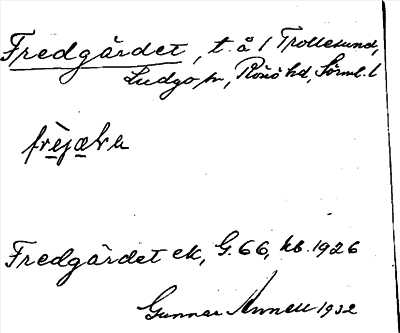 Fredgärdet, t. å 1 Trollesund,
Ludgo sn, Rönö hd, Sörml. l
Fredgärdet ek, G. 66, hb. 1926
Gunnar 1932